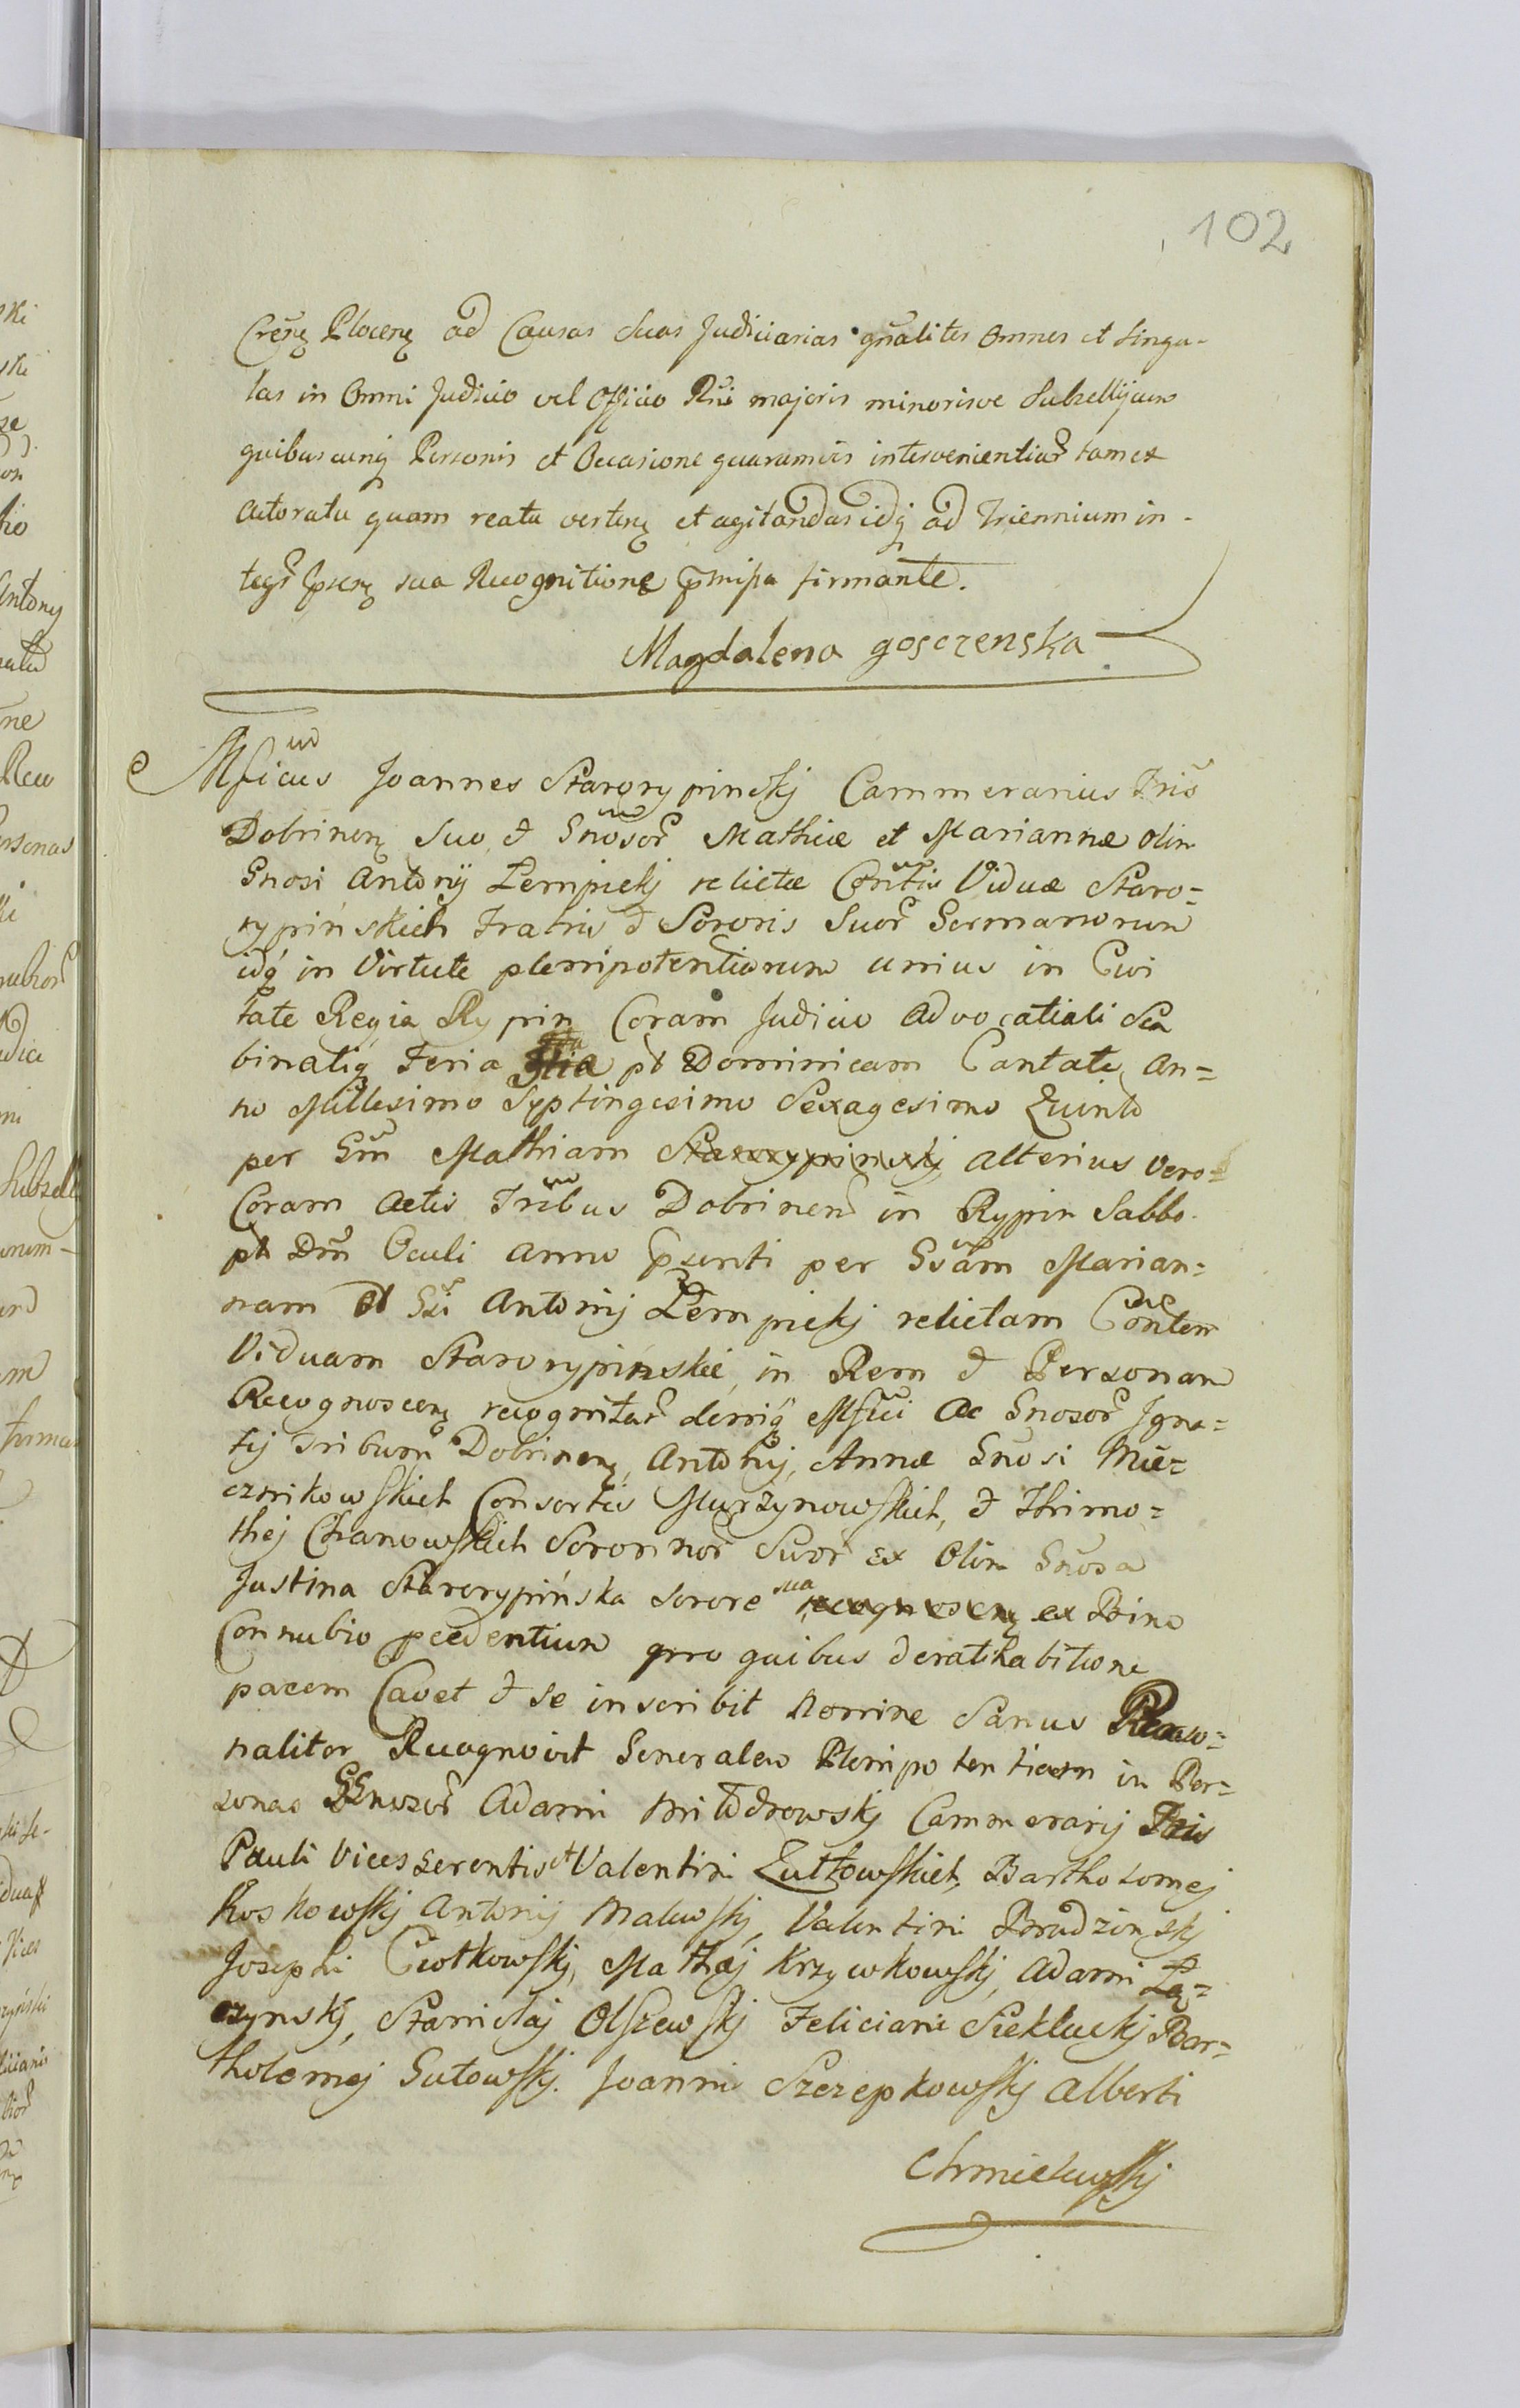 102
Crens Plocens ad Causas Suas Judiciarias gnaliter Omnes et Singu-
las in Omni Judicio vel Officio Rni majoris minorisve Subsellijcum
quibuscunq Personis et Occasione quaramvis intervenientiar tam ex
actoratu quam reatu verten et agitandas idq ad Triennium in-
tegr sua Recognitione firmante.
Magdalena gosczenska
Mficus Joannes Starorypinskj Cammerarius Tris
Dobrinen Suo, et Gnosor Mathiæ et Mariannæ olim
Gnosi Antonij Lempickj relictæ Contis Viduæ Staro=
rypińskich Fratris et Sororis Suor Germanorum
idq in Virtute plenipotentiarum unius in Civi
tate Regia Rypin Coram Judicio Advocatiali Sca
binaliq Feria pt Dominicam Cantate, An=
no Millesimo Septingesimo Sexagesimo Quinto
per Gm Mathiam Starorypinskj alterius vero=
Coram Actis Tribus Dobrinen in Rypin Sabbo
pt Dm Oculi Anno psenti per Gsam Marian=
nam Gsi Antonij Lempickj relictam Contem
Viduam Starorypinskie, in Rem et Personam
Recognoscen recognitar deniq Mfci Ac Gnosor Igna=
tij Tribuni Dobrinen, Antonij, Annæ Gnosi Mie=
cznikowskich Consortis Murzynowskich, et Thimo=
thej Chanowskich Sororinor Suor ex Olim Gnosa
Justina Starorypińska Sorore sua recognoscen ex Bino
Connubio pcedentium pro quibus de ratihabitione
pacem Cavet et se inscribit Nomine Sanus Perso=
naliter Recognovit Generalem Plenipotentiam in Per=
sonas GGnosor Adami Cammerarij
Pauli Vices Gerentis et Valentini Zułtowskich, Bartholomej
Roskowskj Antonij Malewskj, Valentini Brudzinskj
Josephi Ciotkowskj, Mathæj Krzywkowskj, Adami Łą=
czynskj, Stanislaj Olszewskj Feliciani Siekluckj Bar=
tholomej Gutowskj. Joannis Szczepkowskj Alberti
Chmielewskj